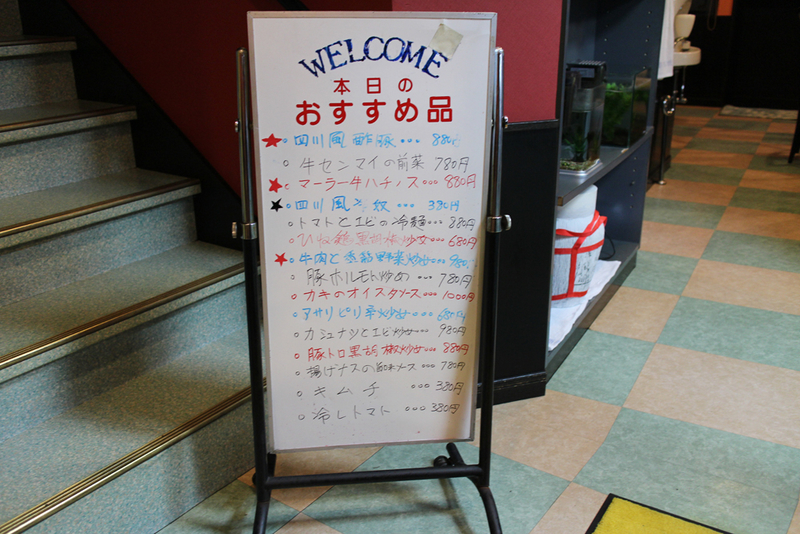 WELCOME
本日の
おすすめ品
★○ 四川風酢豚… 880円
○ 牛センマイの前菜 780円
★○ マーラー牛ハチノス… 880円
★○ 四川風冷奴 … 380円
○ トマトとエビの冷麺… 880円
○ ひね鶏黒胡椒炒め… 680円
★○ 牛肉と季節野菜炒め… 980
○ 豚ホルモト炒め … 780円
○ カキのオイスタソース… 1000円
○ アサリピリ辛炒め… 680円
○ カシュナシとエビ炒め… 980円
○ 豚トロ黒胡椒炒め… 880円
○ 揚げナスの ソース… 780円
○ キムチ …380円
○ 冷しトマト …380円